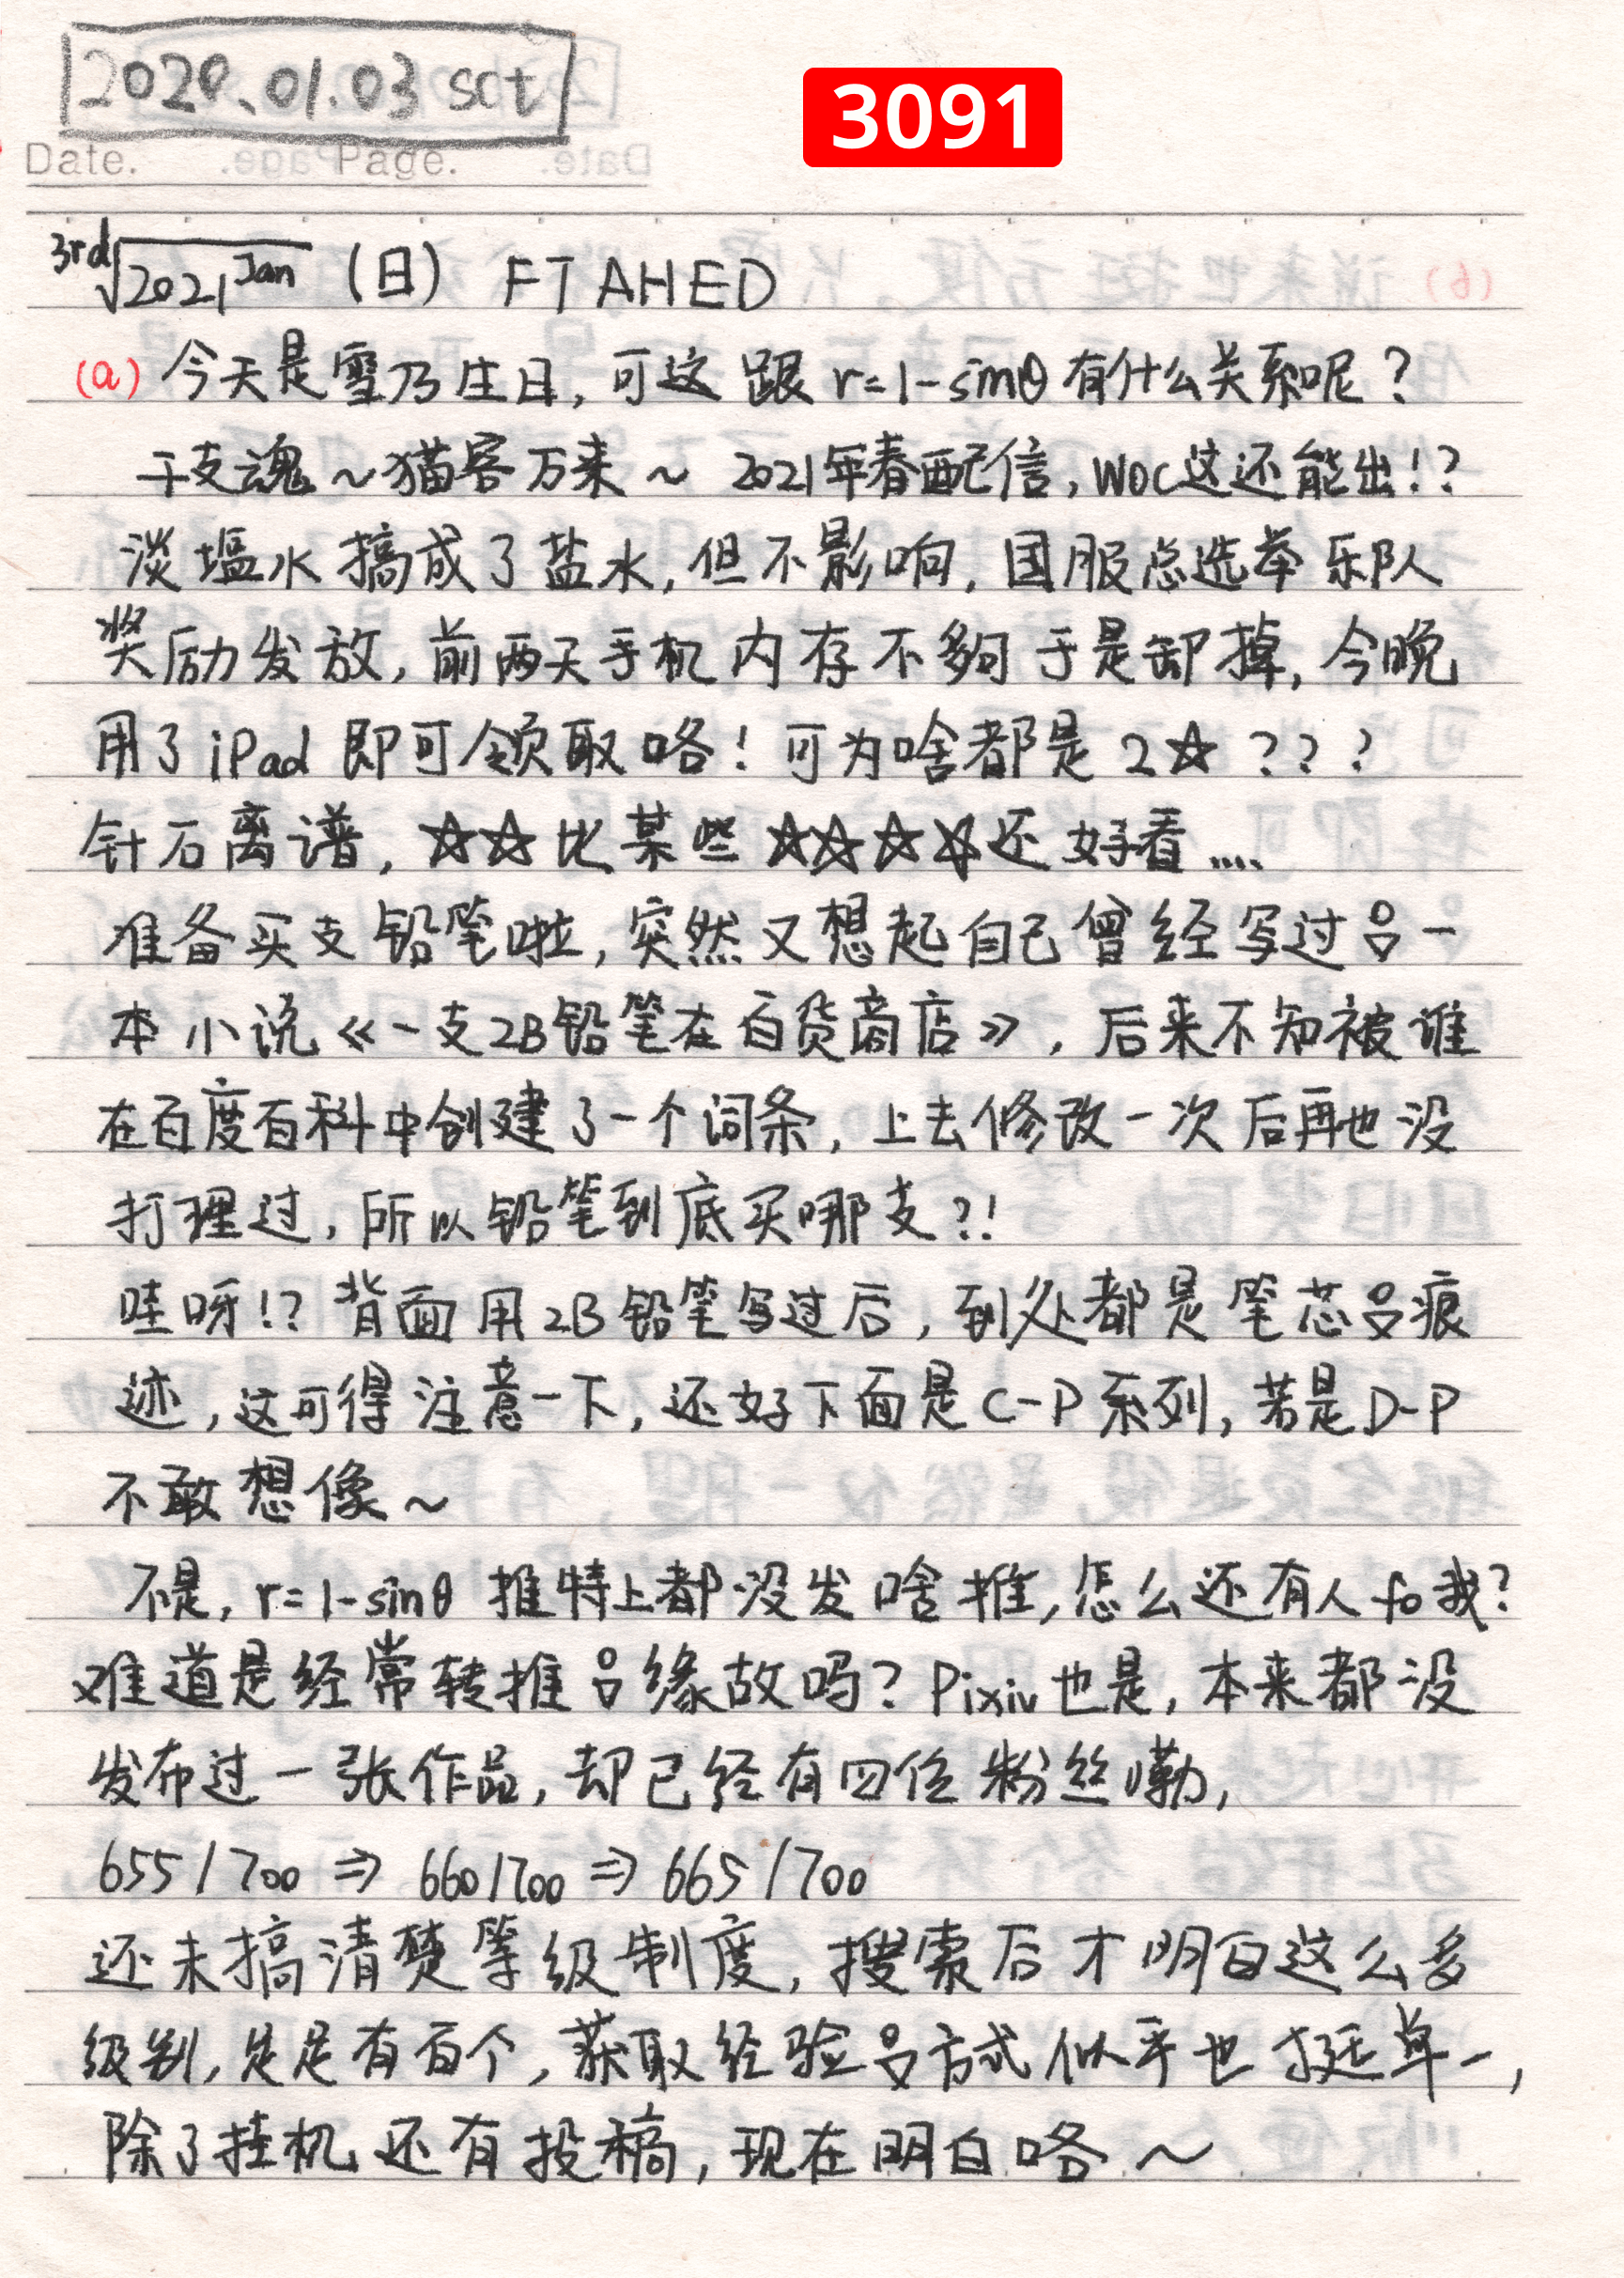 2020.01.03 sat
3091
Date. Page.
3rd√2021 Jan (日) FTAHED
(a) 今天是雪乃生日, 可这跟 r=1-sinθ 有什么关系呢?
干支魂～猫客万来～ 2021年春配信, woc这还能出!?
淡塩水搞成了盐水, 但不影响, 国服总选举乐队
奖励发放, 前两天手机内存不够于是卸掉, 今晚
用了iPad 即可领取咯! 可为啥都是2☆???
针石离谱, ☆☆比某些☆☆☆☆还好看....
准备买支铅笔啦, 突然又想起自己曾经写过呂一
本小说《一支2B铅笔在百货商店》, 后来不知被谁
在百度百科中创建了一个词条, 上去修改一次后再也没
打理过, 所以铅笔到底买哪支?!
哇呀!? 背面用2B铅笔写过后, 到处都是笔芯呂痕
迹, 这可得注意一下, 还好下面是C-P系列, 若是D-P
不敢想像～
不是, r=1-sinθ 推特上都没发啥推, 怎么还有人fo我?
难道是经常转推呂缘故吗? Pixiv也是, 本来都没
发布过一张作品, 却已经有四位粉丝嘞,
655/700 ⇒ 660/700 ⇒ 665/700
还未搞清楚等级制度, 搜索后才明白这么多
级别, 足足有百个, 获取经验呂方式似乎也挺单一,
除了挂机还有投稿, 现在明白咯～